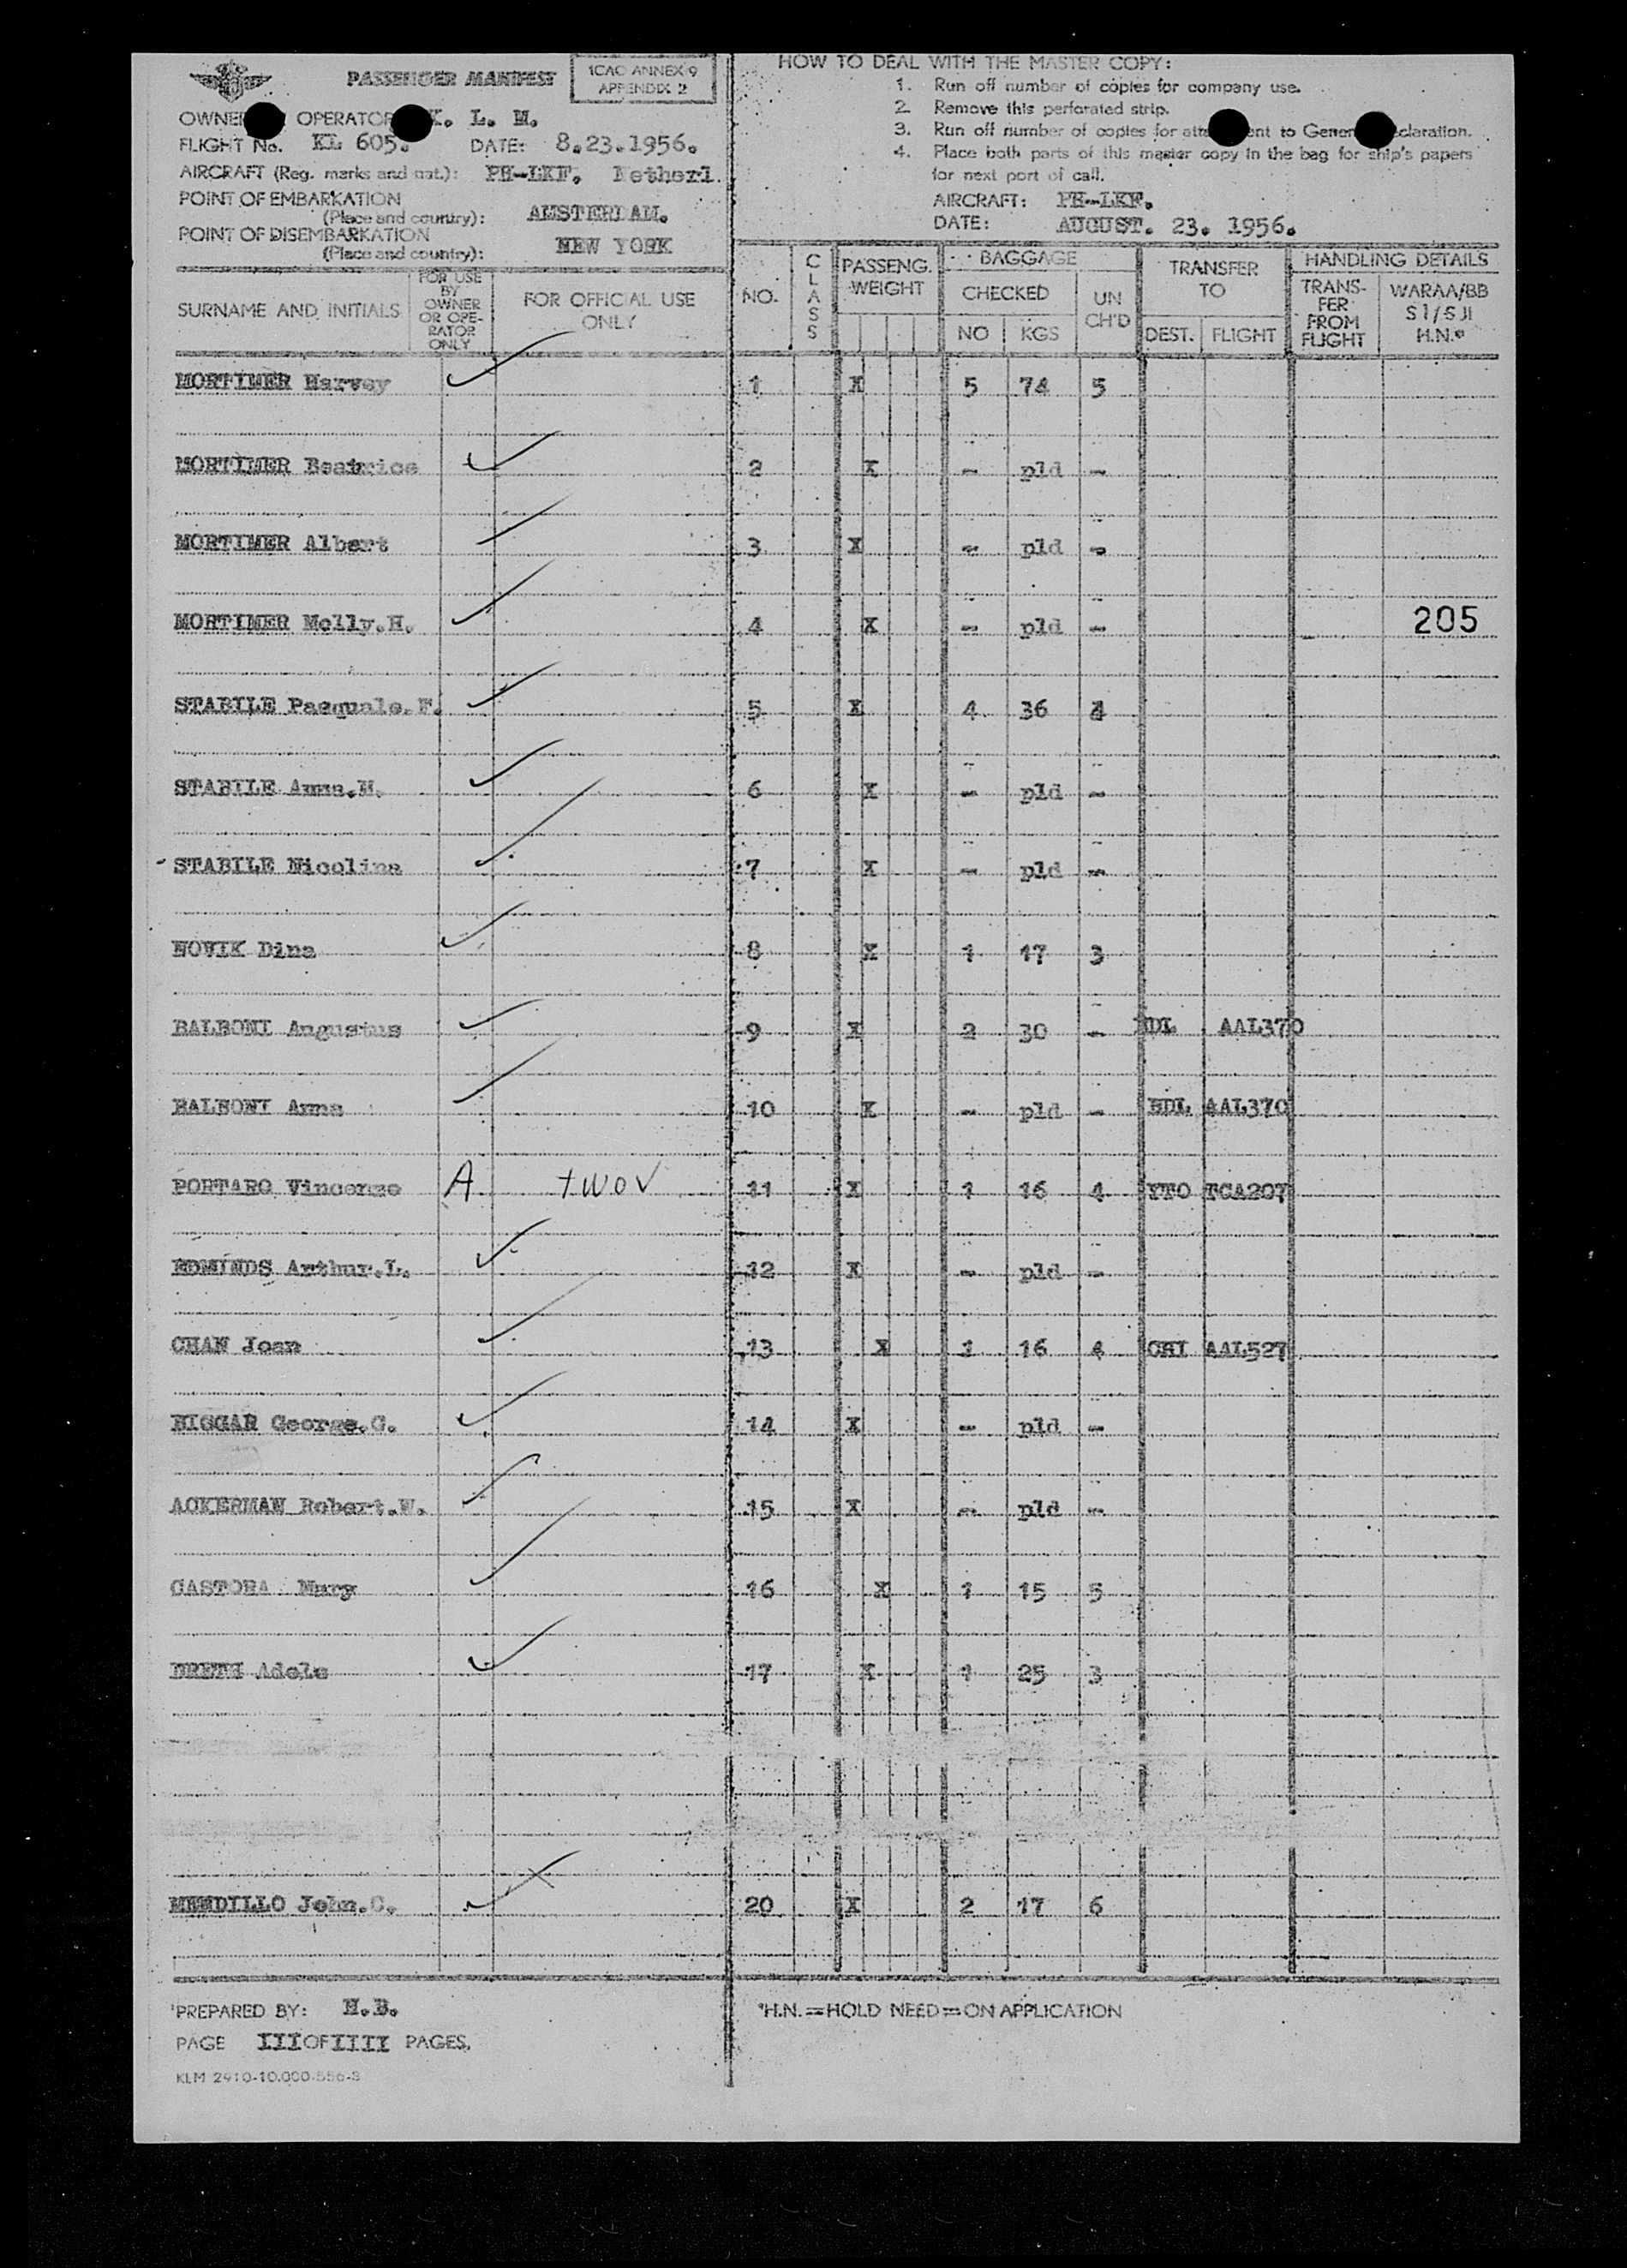 PASSENGER MANIFEST
ICAO ANNEX 9
APPENDIX 2
OWNE OPERATOR K. L. M.
FLIGHT No. KL 605. DATE: 8.23.1956.
AIRCRAFT (Reg. marks and nat.): PH-LKF. Netherl.
POINT OF EMBARKATION
(Place and country): AMSTERDAM.
POINT OF DISEMBARKATION
(Place and country): NEW YORK
HOW TO DEAL WITH THE MASTER COPY:
1. Run off number of copies for company use.
2. Remove this perforated strip.
3. Run off number of copies for att ent to Gener claration.
4. Place both parts of this master copy in the bag for ship's papers
for next port of call.
AIRCRAFT: PH-LKF.
DATE: AUGUST. 23. 1956.
SURNAME AND INITIALS
FOR USE
BY
OWNER
OR OPE-
RATOR
ONLY
FOR OFFICIAL USE
ONLY
NO.
CLASS
PASSENG.
WEIGHT
BAGGAGE
CHECKED
NO KGS
UN
CH'D
TRANSFER
TO
DEST. FLIGHT
HANDLING DETAILS
TRANS-
FER
FROM
FLIGHT
WARAA/BB
SI/SJI
H.N.*
MORTIMER Harvey 1 X 5 74 5
MORTIMER Beatrice 2 X - pld -
MORTIMER Albert 3 X - pld -
MORTIMER Molly.H. 4 X - pld - 205
STABILE Pasquale.F. 5 X 4 36
STABILE Anna.M. 6 X - pld -
STABILE Nicolina 7 X - pld -
NOVIK Dina 8 X 1 17 3
BALBONI Angustus 9 X 2 30 - BDL AAL370
BALBONI Anna 10 X - pld - BDL AAL370
PORTARO Vincenzo A twov 11 X 1 16 4 YTO TCA207
EDMINDS Arthur.L. 12 X - pld -
CHAN Joan 13 X 1 16 4 CHI AAL527
BIGGAR George.G. 14 X - pld -
ACKERMAN Robert.W. 15 X - pld -
CASTORA Mary 16 X 1 15 5
DRETH Adele 17 X 1 25 3
MENDILLO John.C. 20 X 2 17 6
PREPARED BY: H.B.
PAGE III OF IIII PAGES.
KLM 2410-10.000-556-S
*H.N. = HOLD NEED = ON APPLICATION